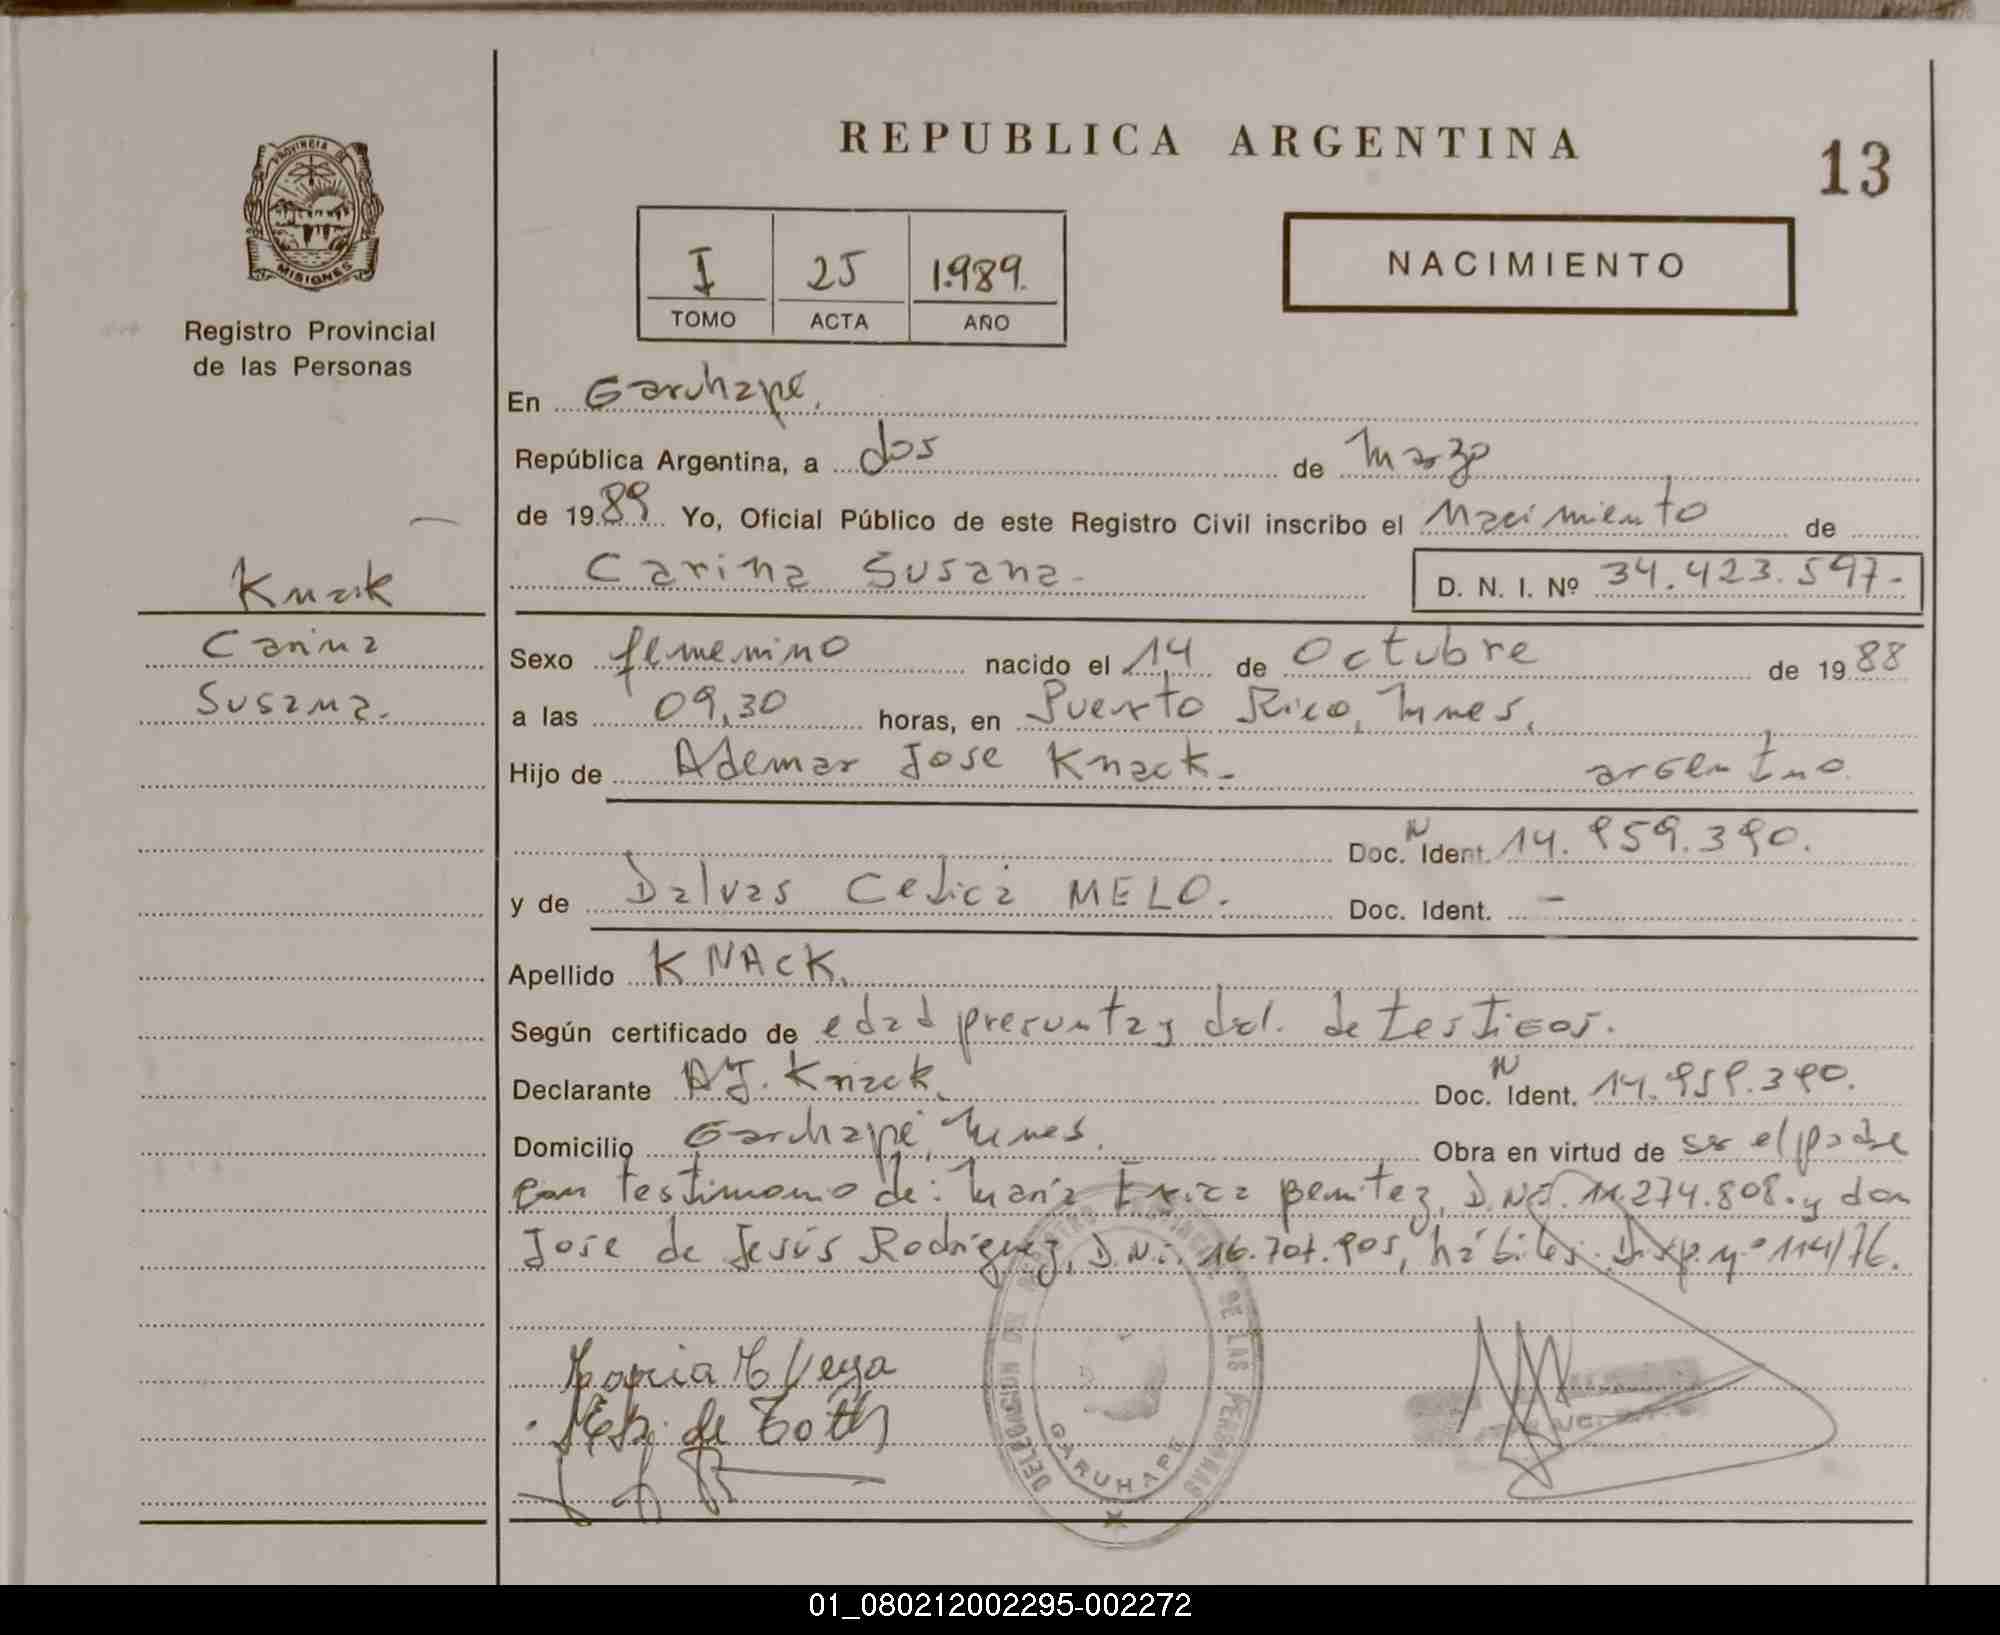 REPUBLICA ARGENTINA
13
PROVINCIA DE
MISIONES
Registro Provincial
de las Personas
I 25 1.989.
TOMO ACTA AÑO
NACIMIENTO
En Garuhapé.
República Argentina, a dos de marzo
de 1989 Yo, Oficial Público de este Registro Civil inscribo el Nacimiento de
Carina Susana- D. N. I. Nº 34.423.597-
Knack
Carina
Susana.
Sexo femenino nacido el 14 de Octubre de 1988
a las 09,30 horas, en Puerto Rico, Mnes.
Hijo de Ademar Jose Knack- argentino.
Doc. N Ident. 14.959.390.
y de Dalvas Celica MELO. Doc. Ident. -
Apellido KNACK.
Según certificado de edad presunta y decl. de testigos.
Declarante A.J. Knack. Doc. N Ident. 14.959.390.
Domicilio Garuhapé, Mnes. Obra en virtud de ser el padre
con testimonio de: María Benitez, D.N.I. 11.274.808. y don
Jose de Jesús Rodriguez, D.N.I. 16.707.905, hábiles. Disp. nº 114/76.
Maria M Vega
de Toth
DELEGACION DEL REGISTRO PROVINCIAL DE LAS PERSONAS
GARUHAPE
01_080212002295-002272